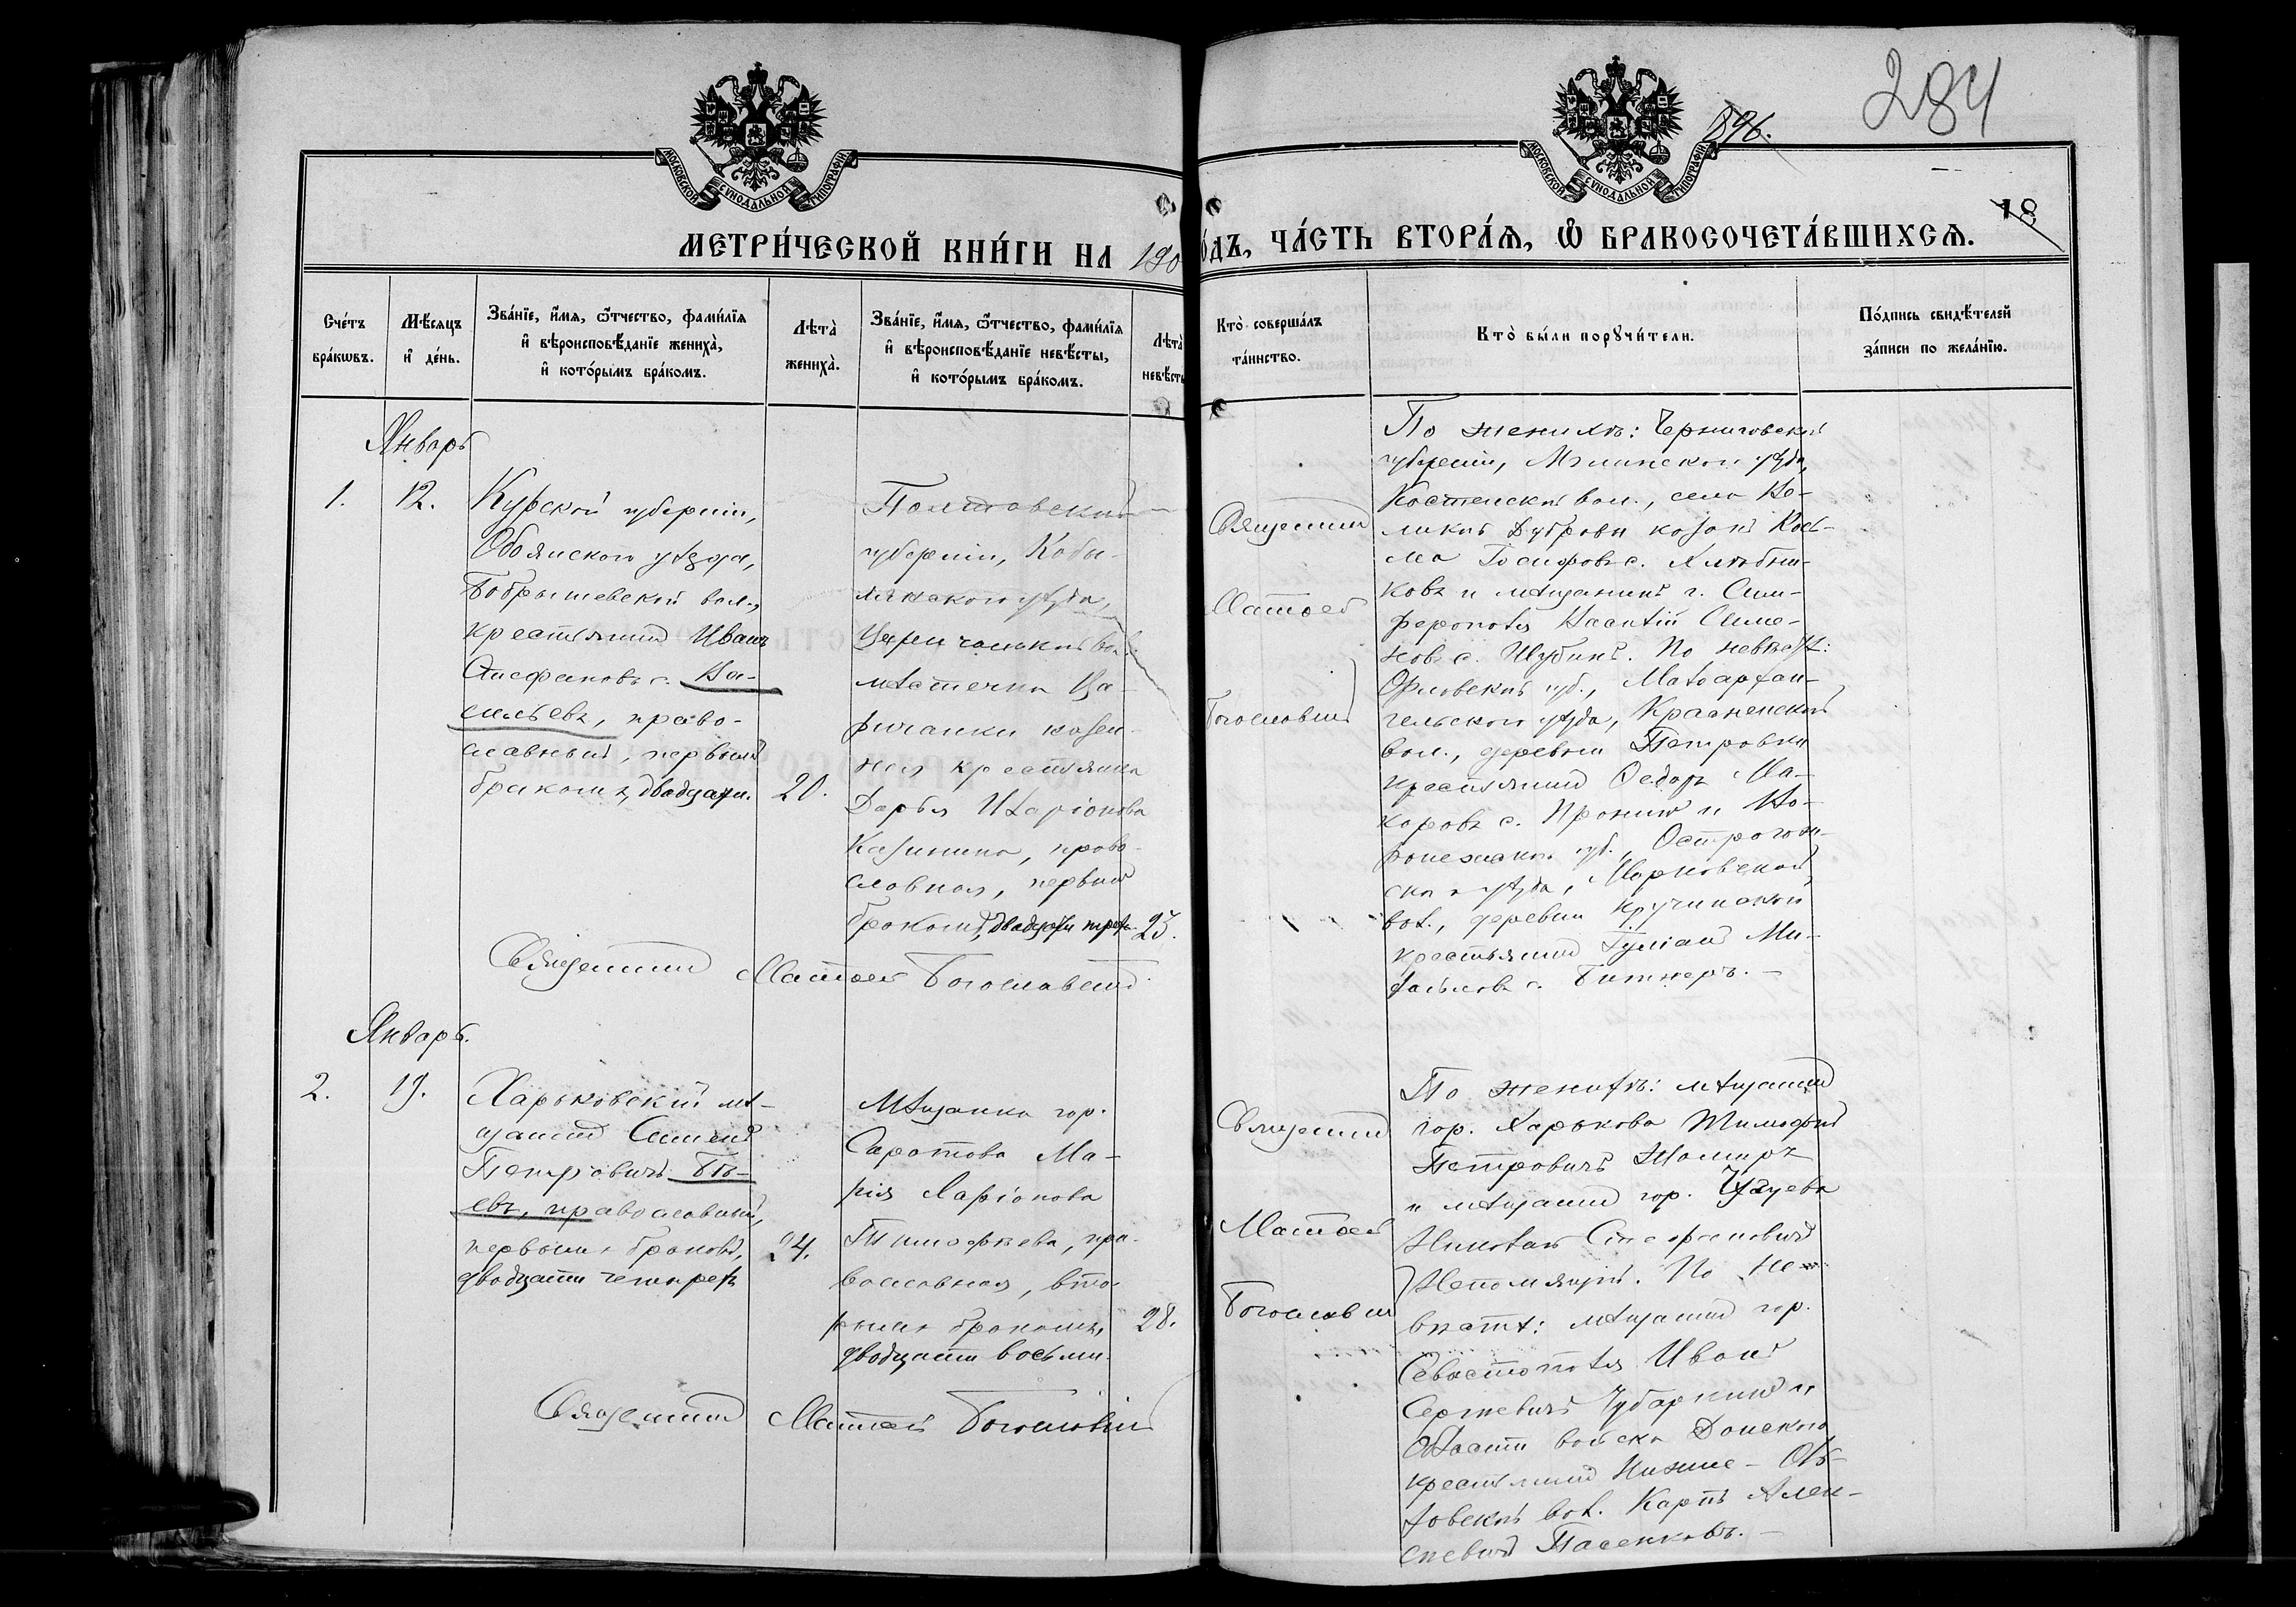 284
896.
МОСКОВСКОЙ СѴНОДАЛЬНОЙ ТИПОГРАФІИ
МОСКОВСКОЙ СѴНОДАЛЬНОЙ ТИПОГРАФІИ
18
МЕТРИ́ЧЕСКОЙ КНИ́ГИ НА 190
О́ДЪ, ЧА́СТЬ ВТОРА́Ѧ, Ѽ БРАКОСОЧЕТА́ВШИХСѦ.
Сче́тъ бра́кѡвъ.
Мѣ́сѧцъ и҆ де́нь.
Зва́нїе, и҆́мѧ, ѻ҆́тчество, фамилїѧ и҆ вѣроисповѣ́данїе жениха̀, и҆ кото́рымъ бра́комъ.
Лѣта̀ жениха̀.
Зва́нїе, и҆́мѧ, ѻ҆́тчество, фамилїѧ и҆ вѣроисповѣ́данїе невѣ́сты, и҆ кото́рымъ бра́комъ.
Лѣта̀ невѣ́сты
Кто̀ соверша́лъ та́инство.
Кто̀ бы́ли порꙋчи́тели.
По́дпись свидѣ́телей за́писи по жела́нїю.
Январь
1.
12.
Курской губерніи,
Обоянскаго уѣзда,
Бобрышевской вол.,
крестьянинъ Иванъ
Стефановъ с. Ва-
сильевъ, право-
славный, первымъ
бракомъ, двадцати.
20.
Полтавской
губерніи, Кобы-
лякскаго уѣзда,
Царичанской вол.
мѣстечка Ца-
ричанки казен-
ная крестьянка
Дарья Иларіонова
Калинина, право-
славная, первымъ
бракомъ, двадцати трехъ
23.
Священникъ Матѳей Богословскій
Священникъ
Матѳей
Богословскій
По женихѣ: Черниговской
губерніи, Мглинскаго уѣзда,
Костенской вол., села Ве-
ликой Дубровы козакъ Кось-
ма Іосифовъ с. Хлѣбни-
ковъ и мѣщанинъ г. Сим-
ферополя Василій Симе-
новъ с. Шубинъ. По невѣстѣ:
Орловской губ., Малоархан-
гельскаго уѣзда, Красненской
вол., деревни Петровки
крестьянинъ Ѳедоръ Ма-
каровъ с. Пронинъ и Во-
ронежской губ., Острогож-
скаго уѣзда, Марковской
вол., деревни
крестьянинъ Іуліанъ Ми-
хайловъ с.
Январь.
2.
19.
Харьковскій мѣ-
щанинъ Симеонъ
Петровичъ Бѣ-
евъ, православный,
первымъ бракомъ,
двадцати четырехъ
24.
Мѣщанка гор.
Саратова Ма-
рія Ларіонова
Тимофѣева, пра-
вославная, вто-
рымъ бракомъ,
двадцати восьми.
28.
Священникъ Матѳей Богословскій
Священникъ
Матѳей
Богословскій
По женихѣ: мѣщанинъ
гор. Харькова Тимофей
Петровичъ
и мѣщанинъ гор. Чугуева
Николай Стефановичъ
Непомнящій. По не-
вѣстѣ: мѣщанинъ гор.
Севастополя Иванъ
Сергѣевичъ Чубаркинъ и
Области войска Донского
крестьянинъ Нижне - Оль-
ховской вол. Карпъ Алек-
сѣевичъ Пасенковъ.